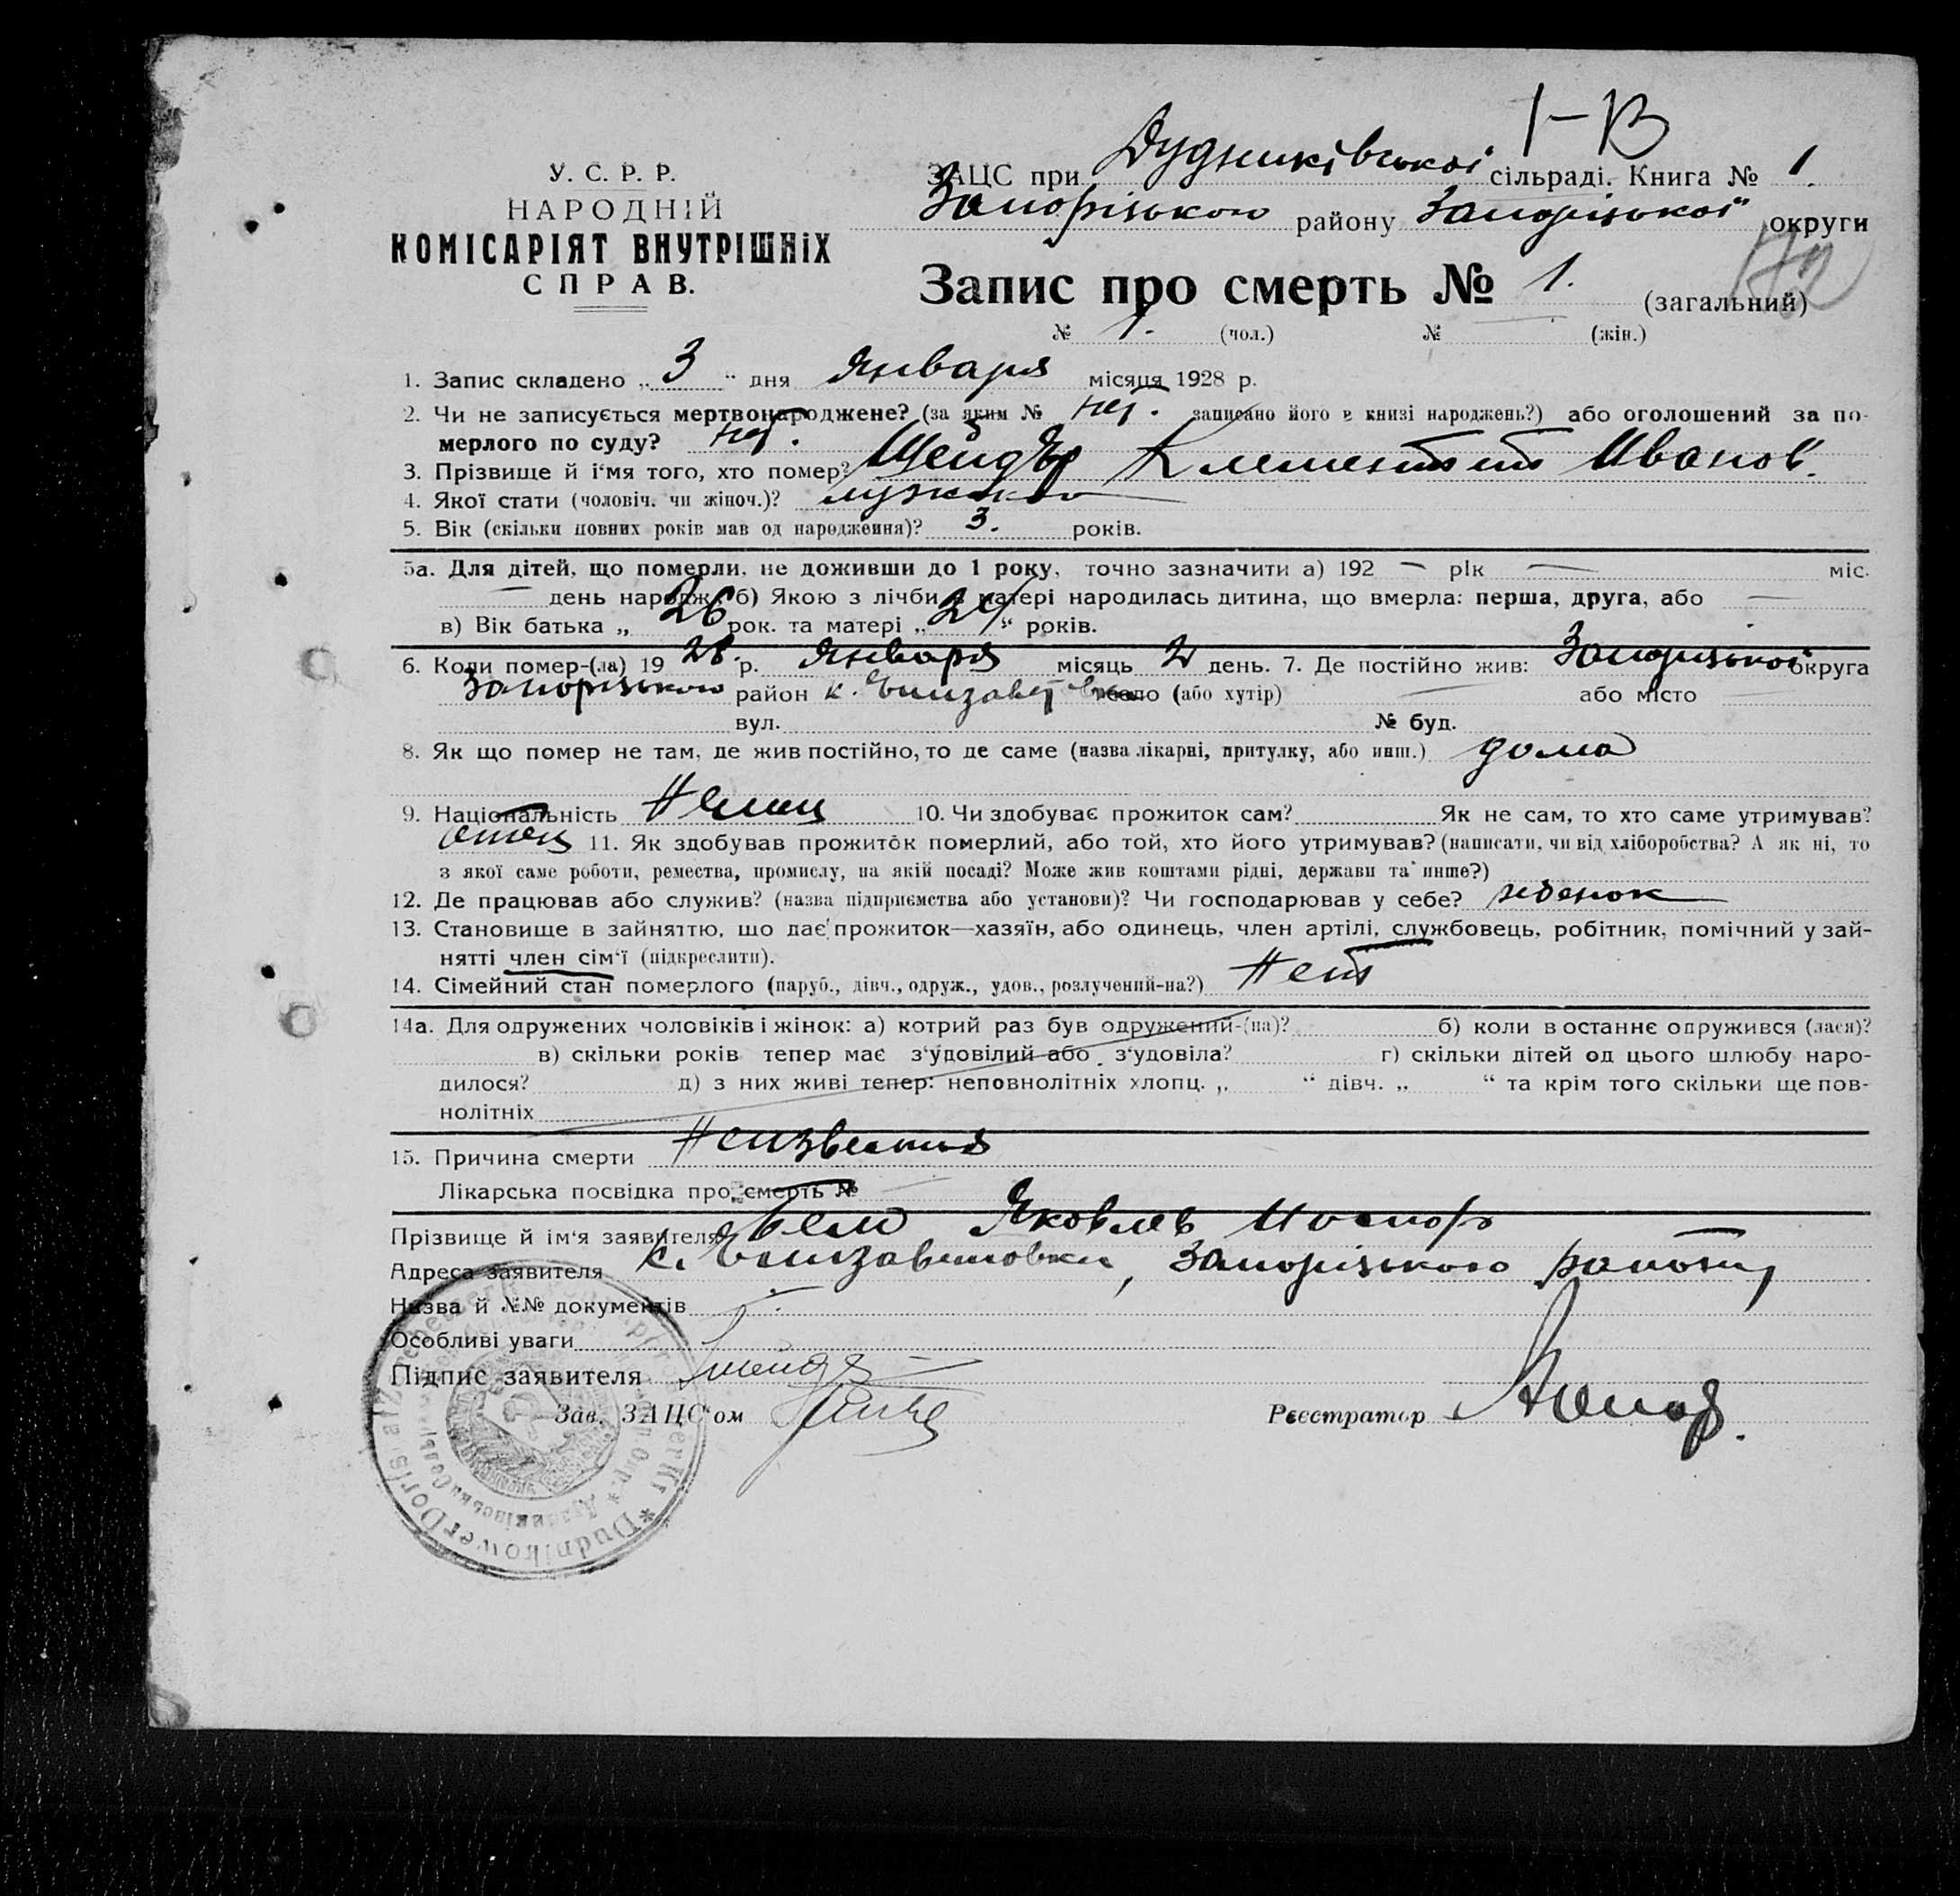 1-В
У. С. Р. Р.
НАРОДНІЙ
КОМІСАРІЯТ ВНУТРІШНІХ
СПРАВ.
ЗАЦС при Дудниківської сільраді. Книга № 1.
Запорізького району Запорізької округи
Запис про смерть № 1. (загальний)
№ 1. (чол.) № (жін.)
1. Запис складено „3“ дня Января місяця 1928 р.
2. Чи не записується мертвонароджене? (за яким № нет. записано його в книзі народжень?) або оголошений за по-
мерлого по суду? нет.
3. Прізвище й і'мя того, хто помер? Иванов.
4. Якої стати (чоловіч. чи жіноч.)? мужского
5. Вік (скільки повних років мав од народження)? 3. років.
5а. Для дітей, що померли, не доживши до 1 року, точно зазначити а) 192 — рік — міс.
— день народж. б) Якою з лічби в матері народилась дитина, що вмерла: перша, друга, або —
в) Вік батька „26 рок. та матері „24“ років.
6. Коли помер-(ла) 1928. р. Января місяць 2 день. 7. Де постійно жив: Запорізької округа
Запорізького район к. село (або хутір) — або місто
вул. № буд.
8. Як що помер не там, де жив постійно, то де саме (назва лікарні, притулку, або инш.) дома
9. Національність Немец 10. Чи здобуває прожиток сам? Як не сам, то хто саме утримував?
отец 11. Як здобував прожиток померлий, або той, хто його утримував? (написати, чи від хліборобства? А як ні, то
з якої саме роботи, ремества, промислу, на якій посаді? Може жив коштами рідні, держави та инше?)
12. Де працював або служив? (назва підприємства або установи)? Чи господарював у себе? ребенок
13. Становище в зайняттю, що дає прожиток—хазяїн, або одинець, член артілі, службовець, робітник, помічний у зай-
нятті член сім'ї (підкреслити).
14. Сімейний стан померлого (паруб., дівч., одруж., удов., розлучений-на?) Нет
14а. Для одружених чоловіків і жінок: а) котрий раз був одружений-(на)? б) коли в останнє одружився (лася)?
в) скільки років тепер має з'удовілий або з'удовіла? г) скільки дітей од цього шлюбу наро-
дилося? д) з них живі тепер: неповнолітніх хлопц. „ “ дівч. „ “ та крім того скільки ще пов-
нолітніх
15. Причина смерти Неизвестна
Лікарська посвідка про смерть № —
Прізвище й ім'я заявителя Яковлев
Адреса заявителя к. Елизаветовки, Запорізького району
Назва й №№ документів
Особливі уваги
Підпис заявителя
Зав. ЗАЦС'ом Реєстратор
* Dudnikower Dorfs